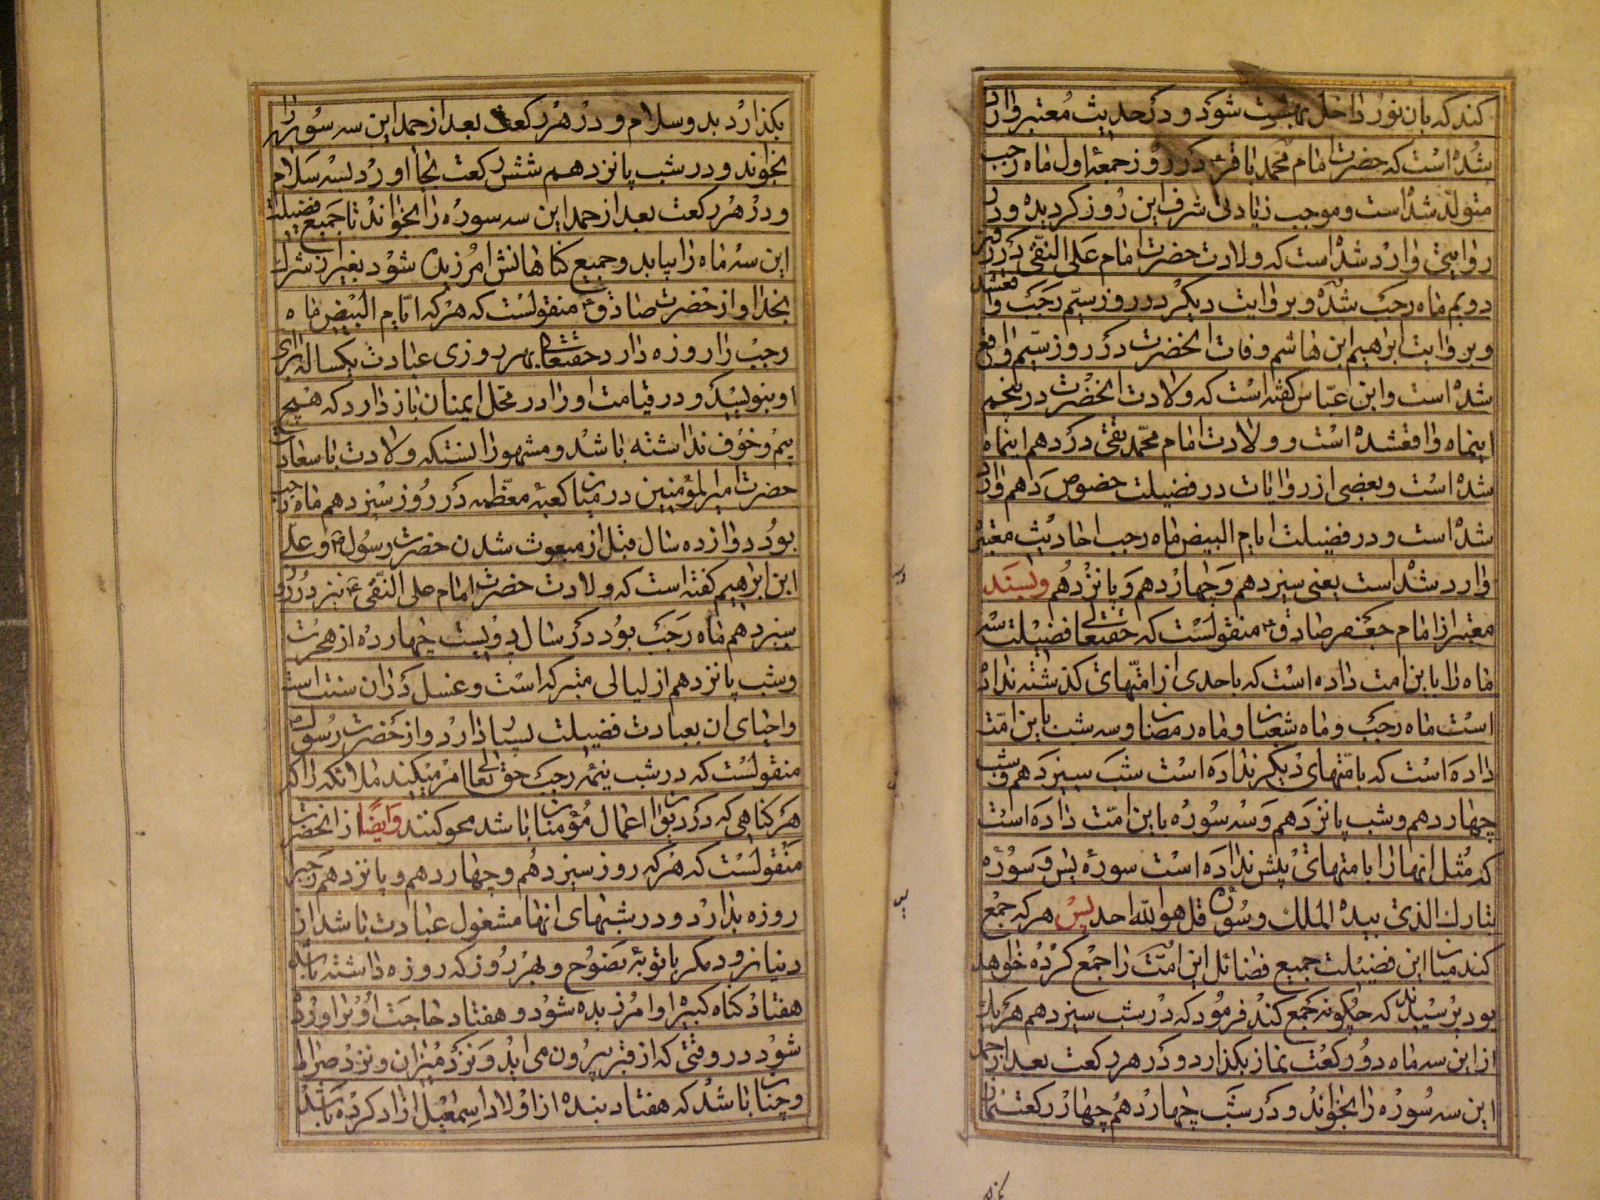 کند که بان نور داخل بهشت شود و در حدیث معتبر وارد
شده است که حضرت امام محمد باقر ع در روز جمعه اول ماه رجب
متولد شده است و موجب زیادتی شرف این روز کردیده و در
روایتی وارد شده است که ولادت حضرت امام علی النقی در روز
دویم ماه رجب شده و بروایت دیکر در روز سیم رجب واقعشده
و بروایت ابراهیم ابن هاشم وفات انحضرت در روز سیم واقع
شده است و ابن عباس کفته است که ولادت انحضرت در پنجم
اینماه واقعشده است و ولادت امام محمد تقی در دهم اینماه
شده است و بعضی از روایات در فضیلت خصوص دهم وارد
شده است و در فضیلت ایام البیض ماه رجب احادیث معتبر
وارد شده است یعنی سیزدهم و چهاردهم و پانزدهم و بسند
معتبر از امام جعفر صادق ع منقولست که حقتعالی فضیلت سه
ماه را باین امت داده است که باحدی از امتهای کذشته نداده
است ماه رجب و ماه شعبان و ماه رمضان و سه شب باین امت
داده است که بامتهای دیکر نداده است شب سیزدهم و شب
چهاردهم و شب پانزدهم و سه سوره باین امت داده است
که مثل انها را بامتهای پیش نداده است سوره یس و سوره
تبارک الذی بیده الملک و سوره قل هو الله احد پس هر که جمع
کند میان این فضیلت جمیع فضائل این امت را جمع کرده خواهد
بود پرسیدند که چکونه جمع کند فرمود که در شب سیزدهم هر یک
از این سه ماه دو رکعت نماز بکذارد و در هر رکعت بعد از حمد
این سه سوره را بخواند و در شب چهاردهم چهار رکعت نماز
بکذارد بدو سلام و در هر رکعت بعد از حمد این سه سوره را
بخواند و در شب پانزدهم شش رکعت بجا اورد بسه سلام
و در هر رکعت بعد از حمد این سه سوره را بخواند تا جمیع فضیلت
این سه ماه را بیابد و جمیع کناهانش امرزیده شود بغیر از شرک
بخدا و از حضرت صادق ع منقولست که هر که ایام البیض ماه
رجب را روزه دارد حقتعالی بهر روزی عبادت یکساله برای
او بنویسد و در قیامت او را در محل ایمنان باز دارد که هیچ
بیم و خوف نداشته باشد و مشهور انستکه ولادت با سعادت
حضرت امیر المؤمنین در میان کعبه معظمه در روز سیزدهم ماه رجب
بود دوازده سال قبل از مبعوث شدن حضرت رسول ص و علی
ابن ابراهیم کفته است که ولادت حضرت امام علی النقی ع نیز در روز
سیزدهم ماه رجب بود در سال دویست چهارده از هجرت
و شب پانزدهم از لیالی متبرکه است و غسل در ان سنت است
و احیای ان بعبادت فضیلت بسیار دارد و از حضرت رسول ص
منقولست که در شب نیمه رجب حق تعالی امر میکند ملائکه را که
هر کناهی که در دیوان اعمال مؤمنان باشد محو کنند و ایضا از انحضرت
منقولست که هر که روز سیزدهم و چهاردهم و پانزدهم رجب را
روزه بدارد و در شبهای انها مشغول عبادت باشد از
دنیا نرود مکر با توبه نصوح و بهر روز که روزه داشته باشد
هفتاد کناه کبیره او امرزیده شود و هفتاد حاجت او براورده
شود در وقتی که از قبر بیرون می اید و نزد میزان و نزد صراط
و چنان باشد که هفتاد بنده از اولاد اسمعیل ازاد کرده باشد